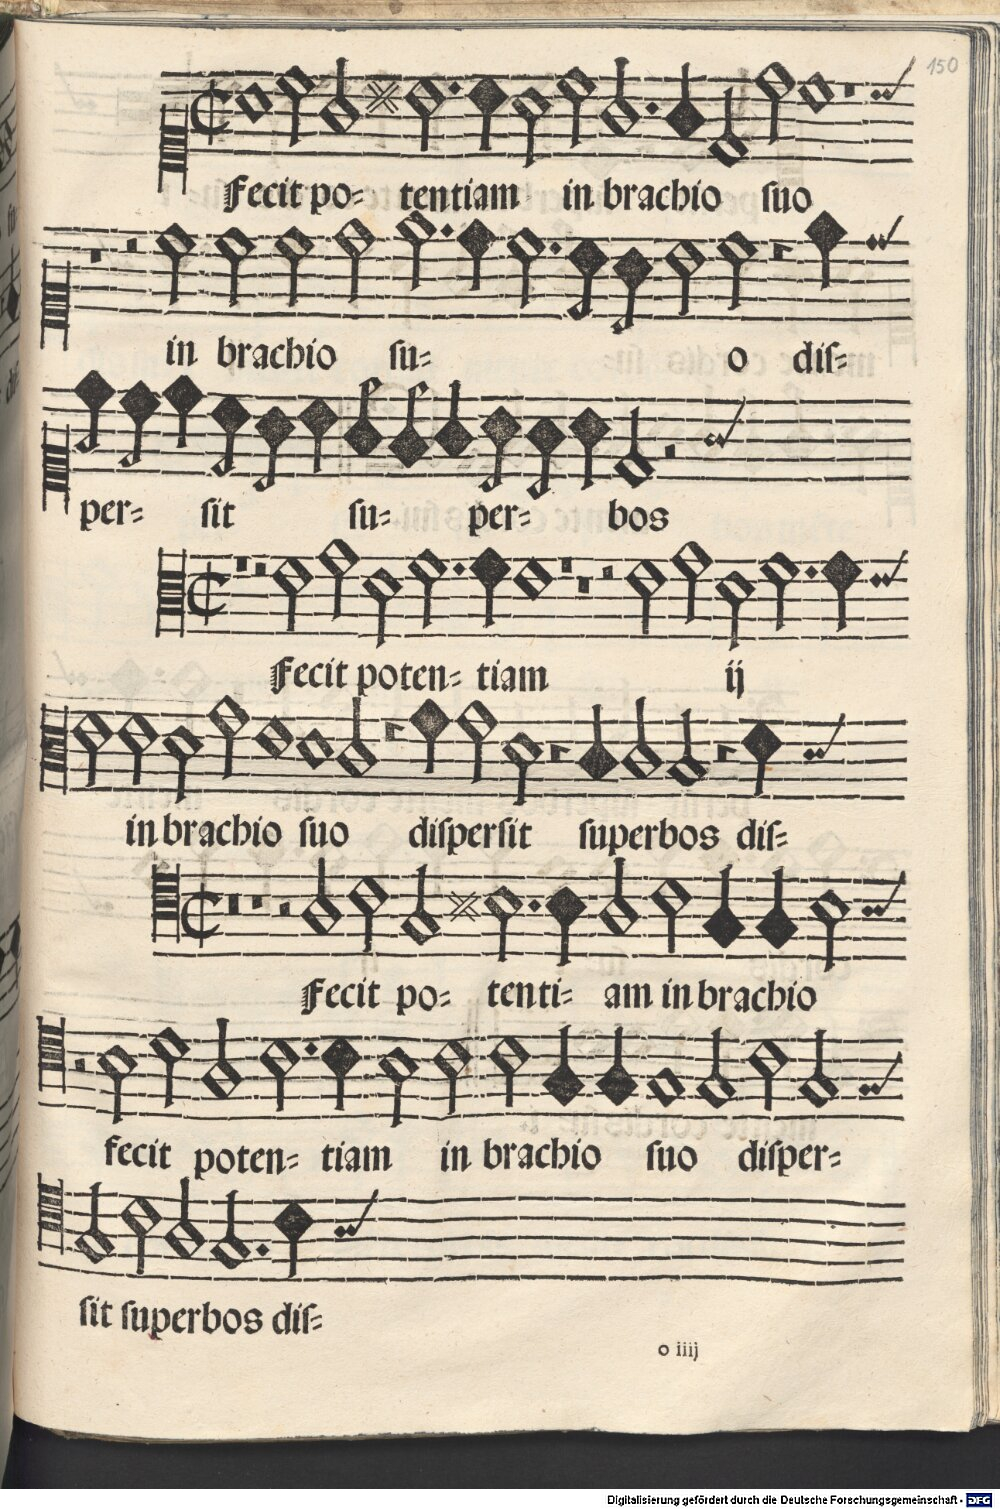 150
Fecit po- tentiam in brachio suo
in brachio su- o dis-
per- sit su- per- bos
Fecit poten- tiam ij
in brachio suo dispersit superbos dis-
Fecit po- tenti- am in brachio
fecit poten- tiam in brachio suo disper-
sit superbos dis-
o iiij
Digitalisierung gefördert durch die Deutsche Forschungsgemeinschaft - DFG